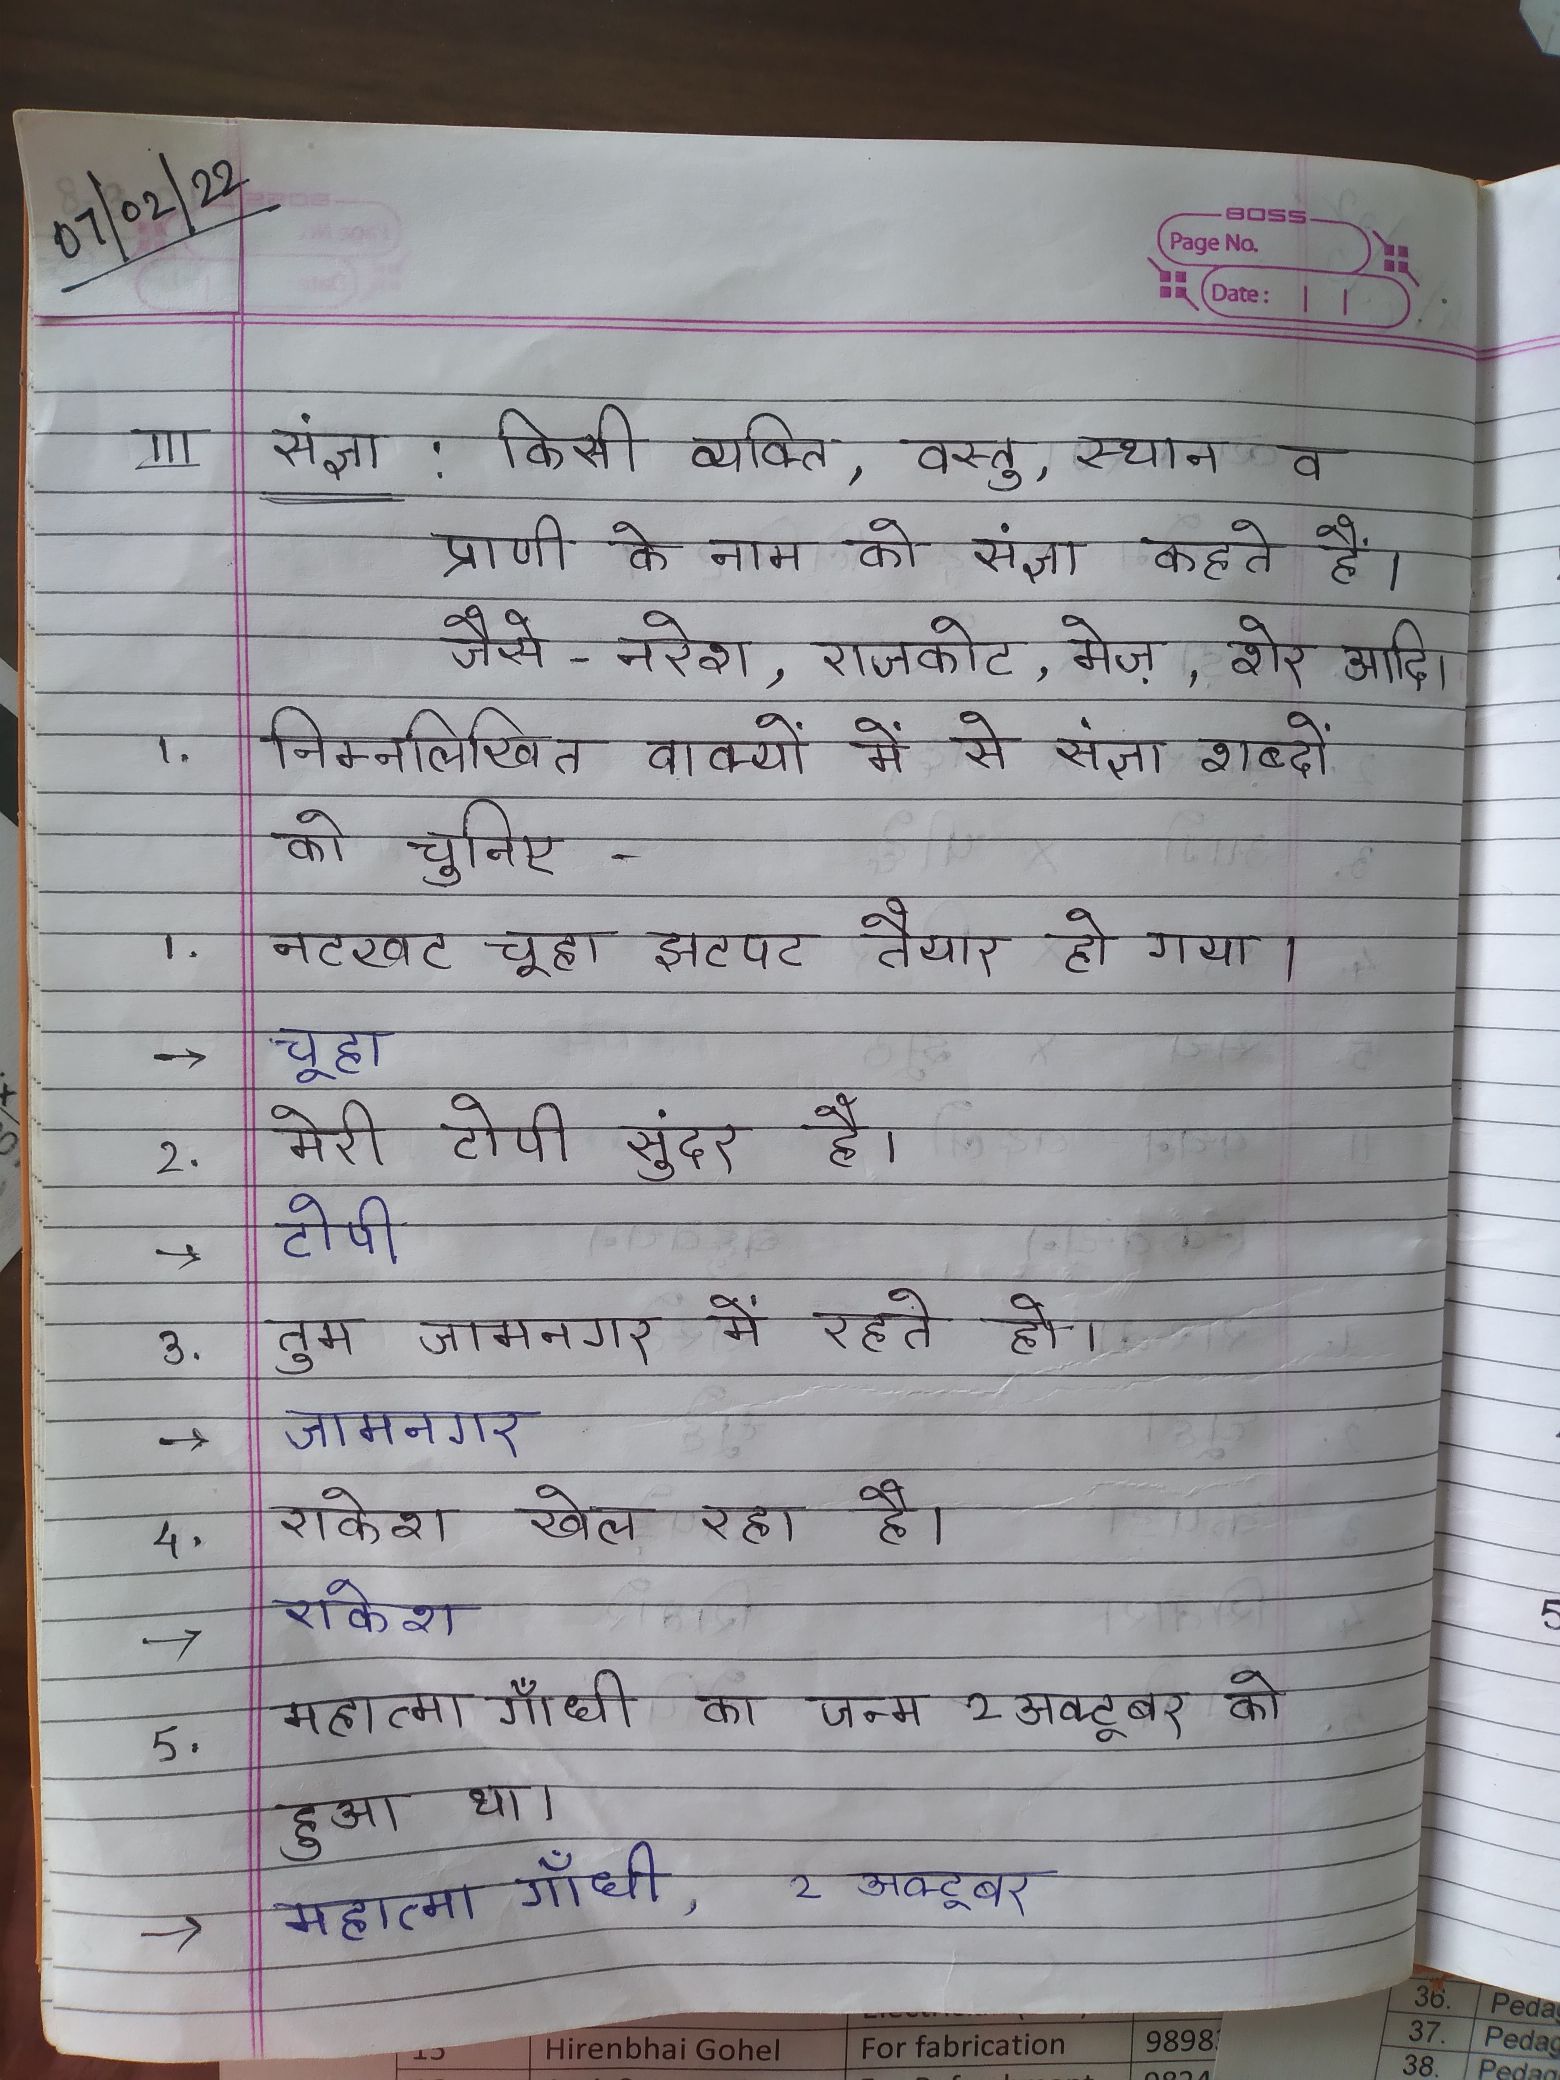 07/02/22
BOSS
Page No.
Date:
III संज्ञा : किसी व्यक्ति, वस्तु, स्थान व
प्राणी के नाम को संज्ञा कहते हैं।
जैसे - नरेश, राजकोट, मेज़, शेर आदि।
1. निम्नलिखित वाक्यों में से संज्ञा शब्दों
को चुनिए -
1. नटखट चूहा झटपट तैयार हो गया।
→ चूहा
2. मेरी टोपी सुंदर है।
→ टोपी
3. तुम जामनगर में रहते हो।
→ जामनगर
4. राकेश खेल रहा है।
→ राकेश
5. महात्मा गाँधी का जन्म 2 अक्टूबर को
हुआ था।
→ महात्मा गाँधी, 2 अक्टूबर
5
36. Pedag
13 Hirenbhai Gohel For fabrication 9898 37. Pedag
38. Pedag